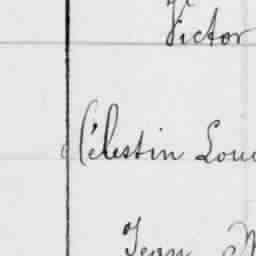 Victor
Célestin Loui
Jean